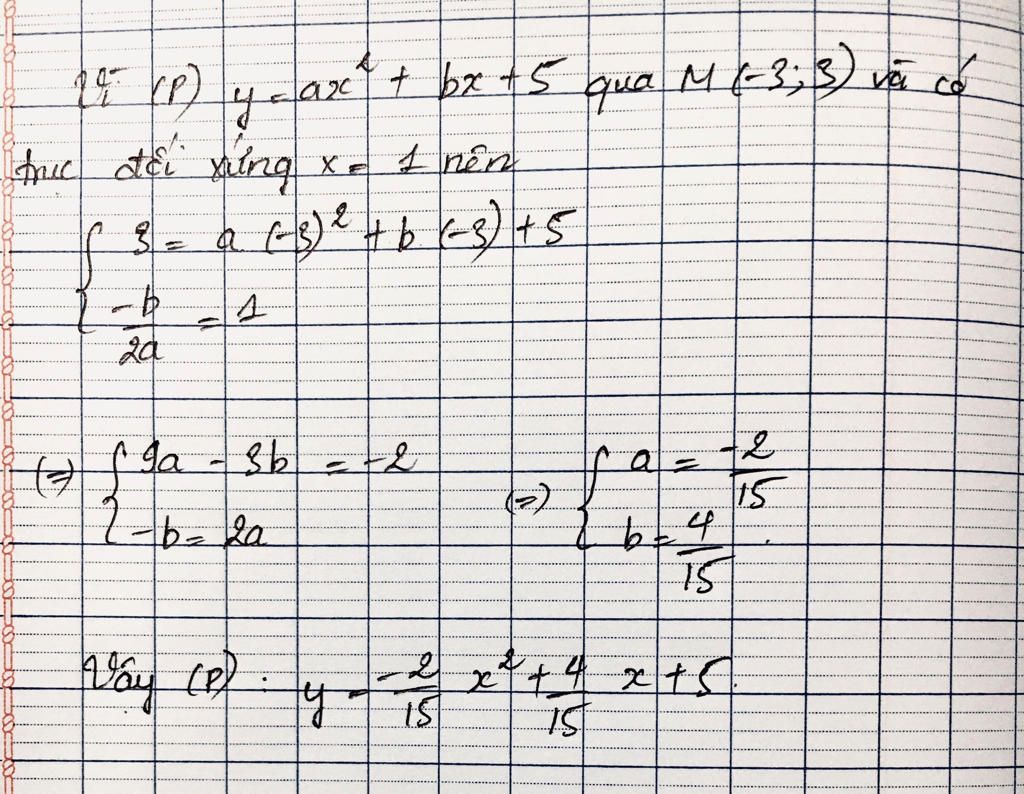 Vì (P) y = ax² + bx + 5 qua M (-3; 3) và có
trục đối xứng x = 1 nên
{ 3 = a (-3)² + b (-3) + 5
-b/2a = 1
(=) { 9a - 3b = -2
-b = 2a
(=) { a = -2/15
b = 4/15 .
Vậy (P) : y = -2/15 x² + 4/15 x + 5.